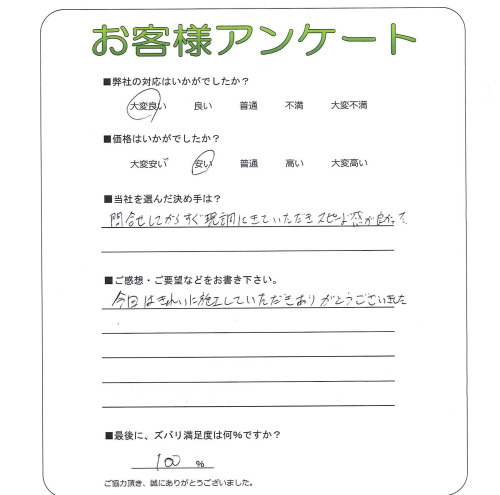 お客様アンケート
■弊社の対応はいかがでしたか？
大変良い 良い 普通 不満 大変不満
■価格はいかがでしたか？
大変安い 安い 普通 高い 大変高い
■当社を選んだ決め手は？
問合せしてからすぐ現調にきていただきスピード感が良かった
■ご感想・ご要望などをお書き下さい。
今日はきれいに施工していただきありがとうございました
■最後に、ズバリ満足度は何%ですか？
100 %
ご協力頂き、誠にありがとうございました。